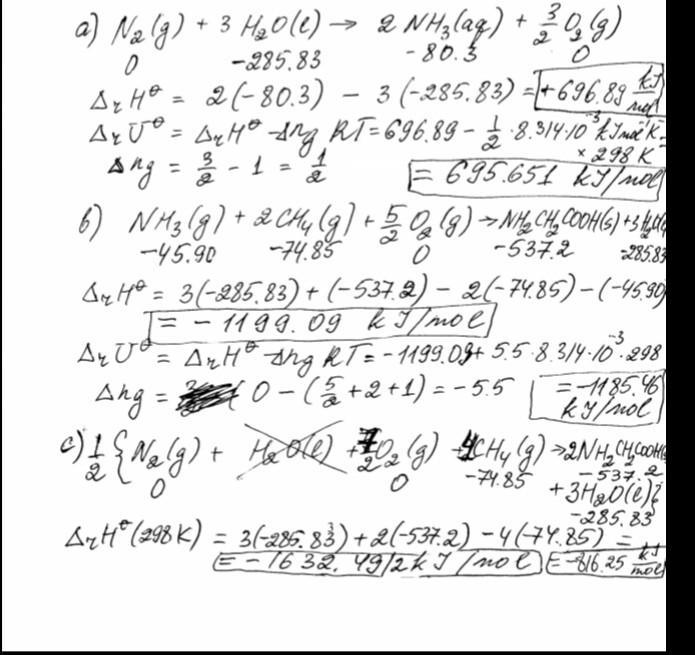 a) N₂(g) + 3 H₂O(l) → 2 NH₃(aq) + 3/2 O₂(g)
0 -285.83 -80.3 0
ΔrH⊖ = 2(-80.3) - 3(-285.83) = +696.89 kJ/mol
ΔrU⊖ = ΔrH⊖ - Δng RT = 696.89 - 1/2 · 8.314·10⁻³ kJ mol⁻¹K⁻¹
× 298 K
Δng = 3/2 - 1 = 1/2 = 695.651 kJ/mol
b) NH₃(g) + 2CH₄(g) + 5/2 O₂(g) → NH₂CH₂COOH(s) + 3H₂O(l
-45.90 -74.85 0 -537.2 -285.83
ΔrH⊖ = 3(-285.83) + (-537.2) - 2(-74.85) - (-45.90)
= -1199.09 kJ/mol
ΔrU⊖ = ΔrH⊖ - Δng RT = -1199.09 + 5.5·8.314·10⁻³·298
Δng = 0 - (5/2 + 2 + 1) = -5.5 = -1185.46
kJ/mol
c) 1/2 { N₂(g) + H₂O(l) + 7/2 O₂(g) + 4CH₄(g) → 2NH₂CH₂COOH(s
0 0 -74.85 -537.2
+ 3H₂O(l)}
-285.83
ΔrH⊖(298K) = 3(-285.83) + 2(-537.2) - 4(-74.85) =
= -1632.49/2 kJ/mol = -816.25 kJ/mol